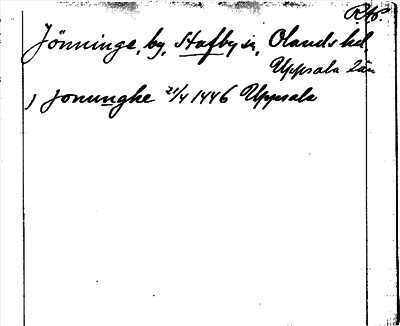 RAp.
Jönninge, by, Stafby sn, Olands hd,
Uppsala län
) jonunghe 21/4 1446 Uppsala